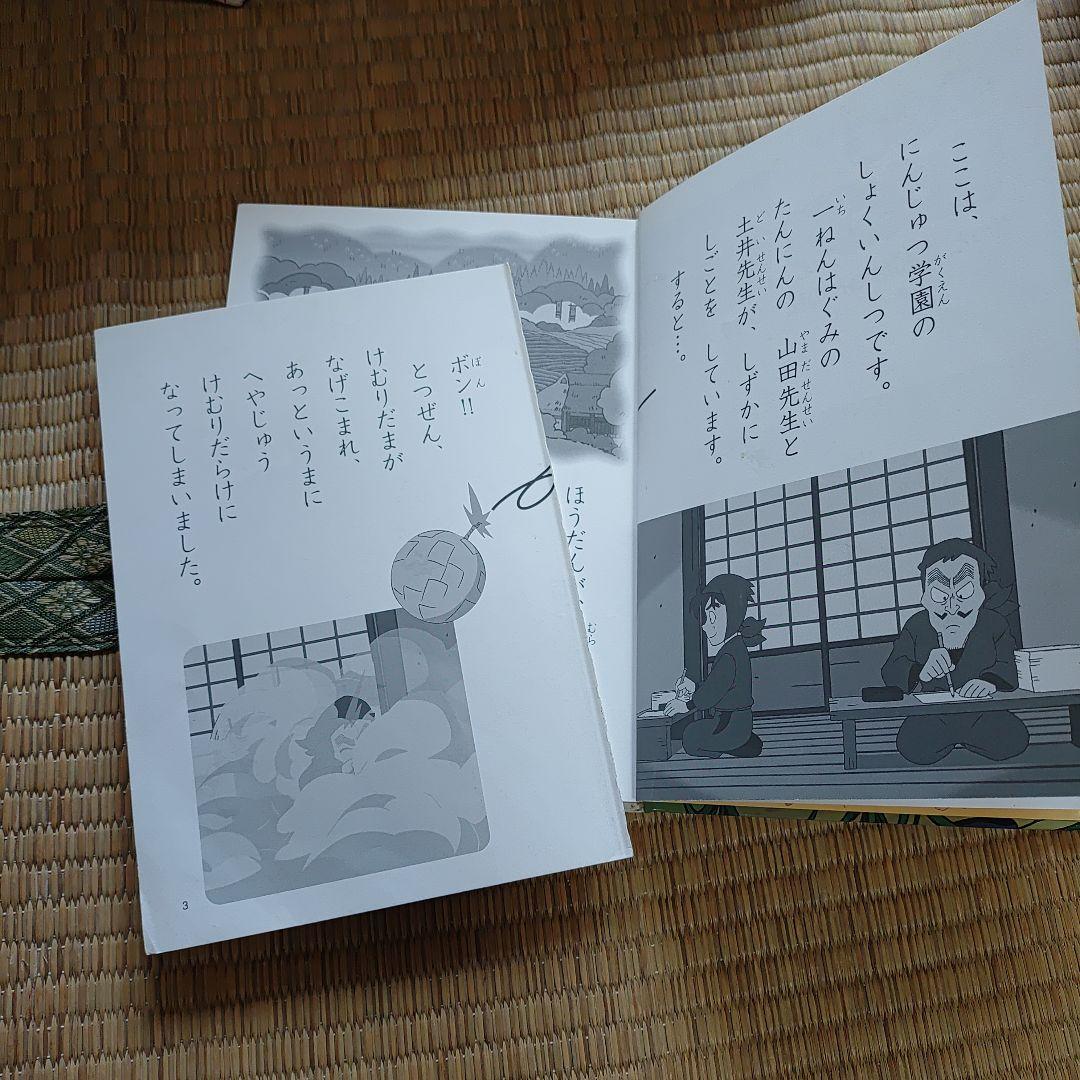 ここは、
にんじゅつ学園の
がくえん
しょくいんしつです。
一ねんはぐみの
いち
たんにんの 山田先生と
やまだせんせい
土井先生が、しずかに
どいせんせい
しごとを しています。
すると…。
ボン!!
ばん
とつぜん、
けむりだまが
なげこまれ、
あっというまに
へやじゅう
けむりだらけに
なってしまいました。
3
ほうだんが、
むら